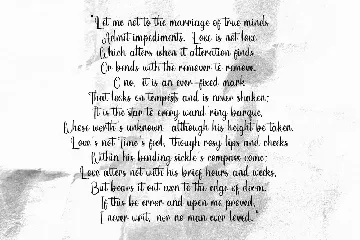 "Let me not to the marriage of true minds
Admit impediments. Love is not love
Which alters when it alteration finds
Or bends with the remover to remove.
O no, it is an ever-fixed mark
That looks on tempests and is never shaken;
It is the star to every wand'ring barque,
Whose worth's unknown although his height be taken.
Love's not Time's fool, though rosy lips and cheeks
Within his bending sickle's compass come;
Love alters not with his brief hours and weeks,
But bears it out even to the edge of doom.
If this be error and upon me proved,
I never writ, nor no man ever loved."